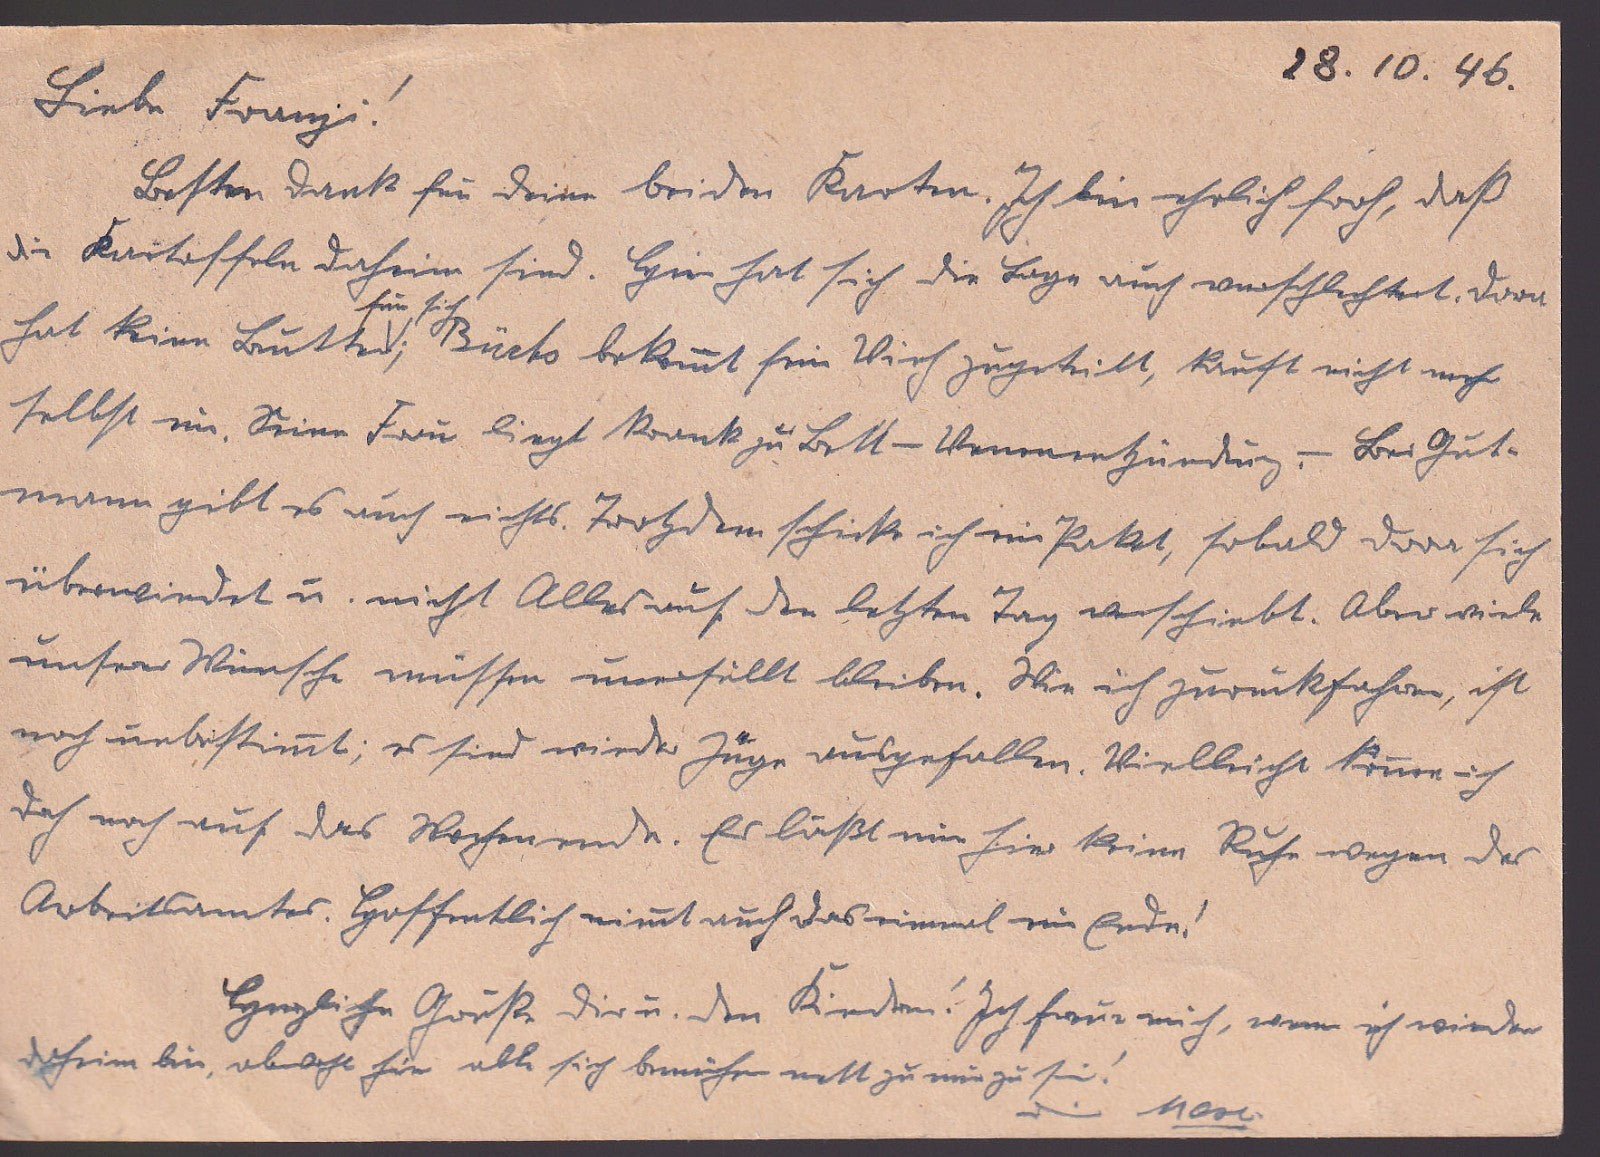 28. 10. 46.
Liebe Franzi!
Besten Dank für Deine beiden Karten. Ich bin ehrlich froh, daß
die Kartoffeln daheim sind. Hier hat sich die Lage auch verschlechtert. Dora
für sich
hat keine Butter; bekom̅t sein Vieh zugeteilt, kauft nicht mehr
selbst ein. Seine Frau liegt krank zu Bett – Venenentzündung. – Bei Gut-
mann gibt es auch nichts. Trotzdem schicke ich ein Paket, sobald Dora sich
überwindet u. nicht Alles auf den letzten Tag verschiebt. Aber viele
unserer Wünsche müssen unerfüllt bleiben. Wie ich zurückfahre, ist
noch unbestim̅t; es sind wieder Züge ausgefallen. Vielleicht kom̅e ich
doch noch auf das Wochenende. Es läßt mir hier keine Ruhe wegen des
Arbeitsamtes. Hoffentlich nim̅t auch das einmal ein Ende!
Herzliche Grüße Dir u. den Kindern! Ich freue mich, wenn ich wieder
daheim bin, obwohl hier alle sich bemühen nett zu mir zu sein!
Dein